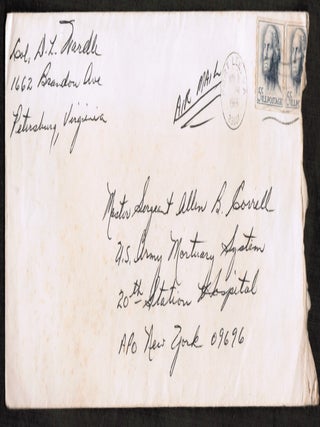 Col. D. L. Wardle
1662 Brandon Ave
Petersburg, Virginia
AIR MAIL
5¢ U.S. POSTAGE
5¢ U.S. POSTAGE
Master Sergeant Allen B. Correll
U.S. Army Mortuary System
20th Station Hospital
APO New York 09696